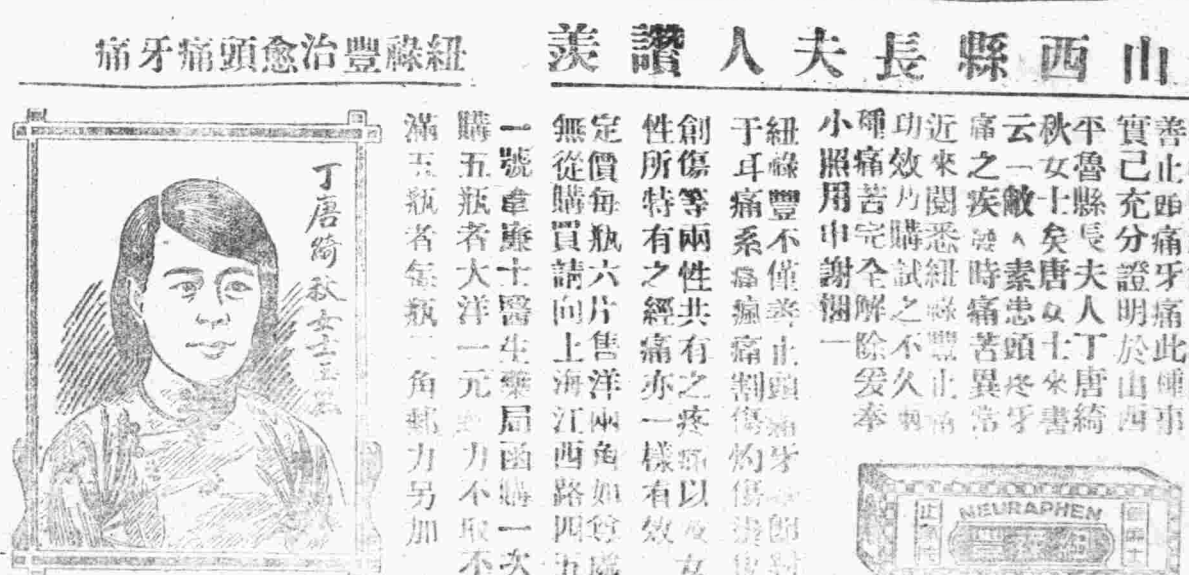 山西縣長夫人讚羨
紐祿豐治愈頭痛牙痛
善止頭痛牙痛此種事
實已充分證明於山西
平魯縣長夫人丁唐綺
秋女士矣唐女士來書
云「敝人素患頭疼牙
痛之疾發時痛苦異常
近來閱悉紐祿豐止痛
功效乃購試之不久兩
種痛苦完全解除爰奉
小照用申謝悃」
紐祿豐不僅善止頭痛牙
于耳痛系痛瘋痛割傷灼傷
創傷等兩性共有之疼痛以及女
性所特有之經痛亦一樣有效
定價每瓶六片售洋兩角如尊處
無從購買請向上海江西路四五
一號韋廉士醫生藥局函購一次
購五瓶者大洋一元 力不取不
滿五瓶者每瓶二角郵力另加
丁唐綺秋女士玉照
NEURAPHEN
止